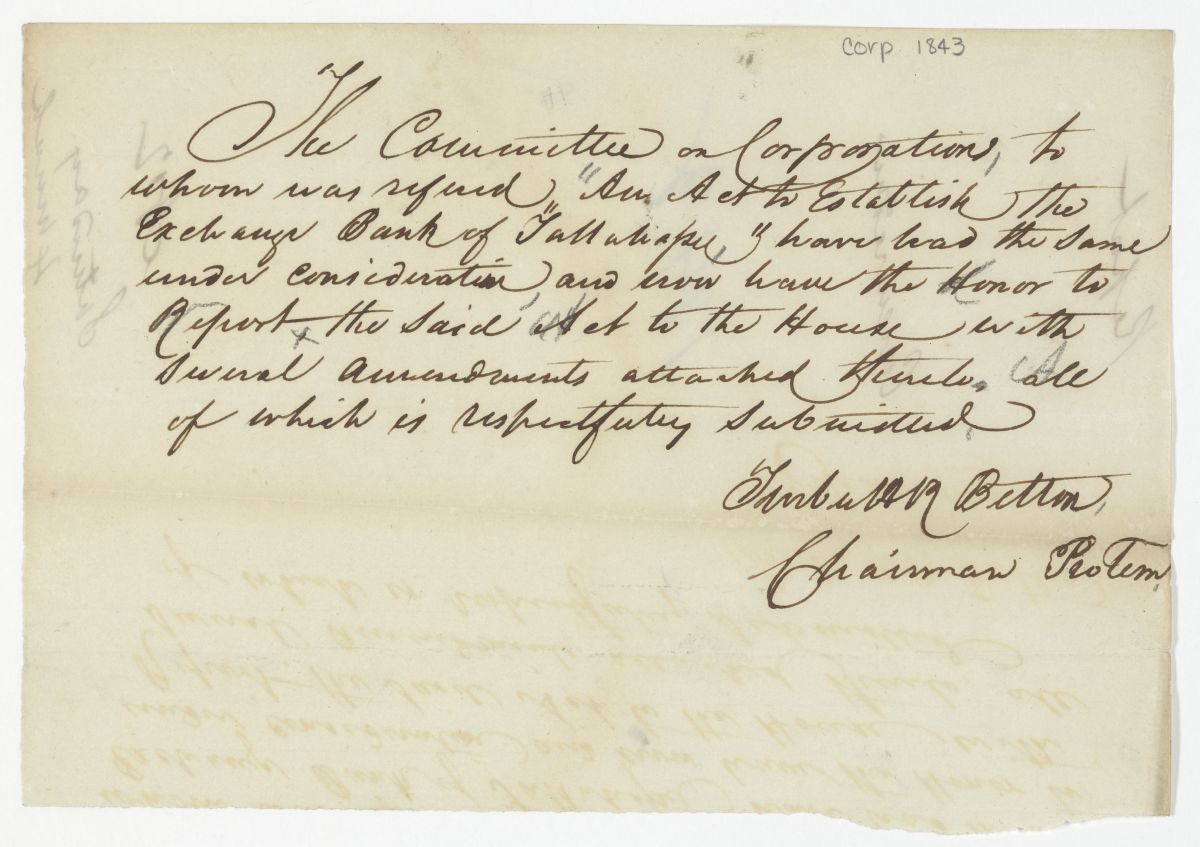 Corp 1843
The Committee on Corporations, to
whom was referred, "An Act to Establish the
Exchange Bank of Tallahassee," have had the same
under consideration, and now have the Honor to
Report the said Act to the House with
Several Amendments attached Hereto. all
of which is respectfully submitted.
Turbutt R Betton,
Chairman ProTem.